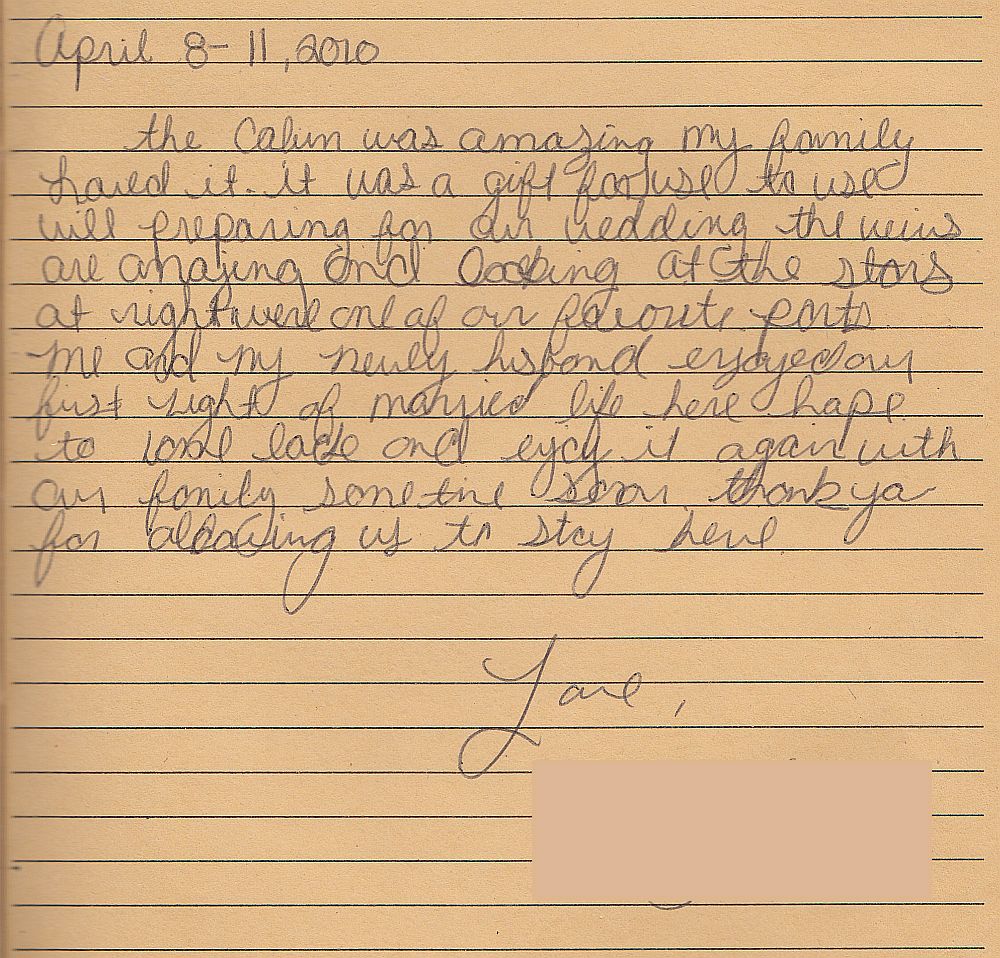 April 8-11, 2010
the Cabin was amazing my family
loved it. it was a gift for use to use
will preparing for our wedding the veiws
are amazing and looking at the stars
at night were one of our favoute parts
me and my newly husband enjoyed our
first night of married life here hope
to come back and enjoy it again with
our family sometime soon. thank you
for allowing us to stay here
Love,